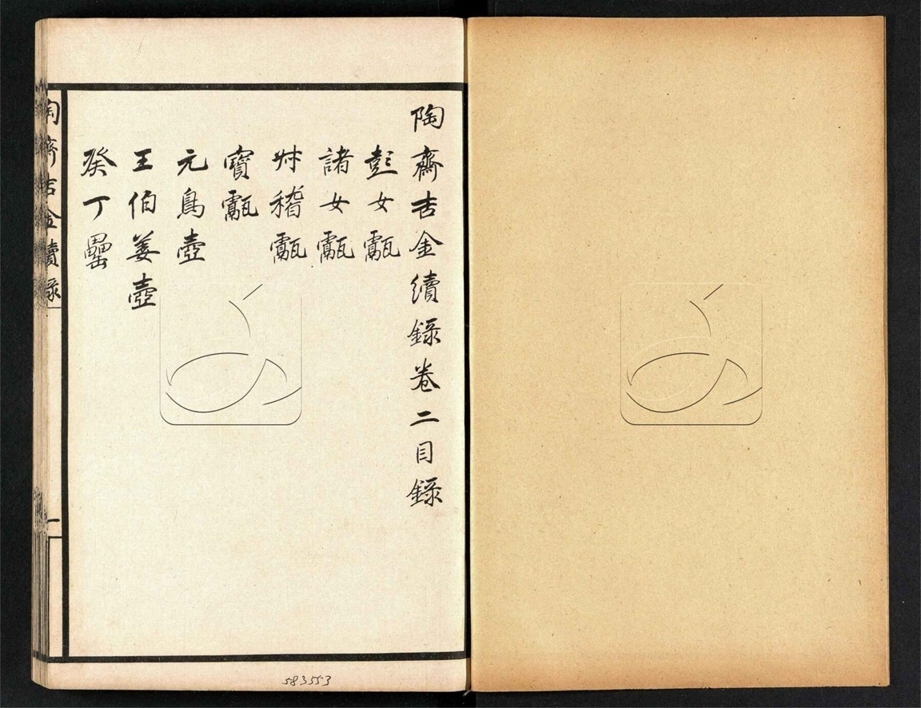 陶齋吉金續錄卷二目錄
彭女甗
諸女甗
艸稽甗
寶甗
元鳥壺
王伯姜壺
癸丁罍
陶齋吉金續錄
一
583553